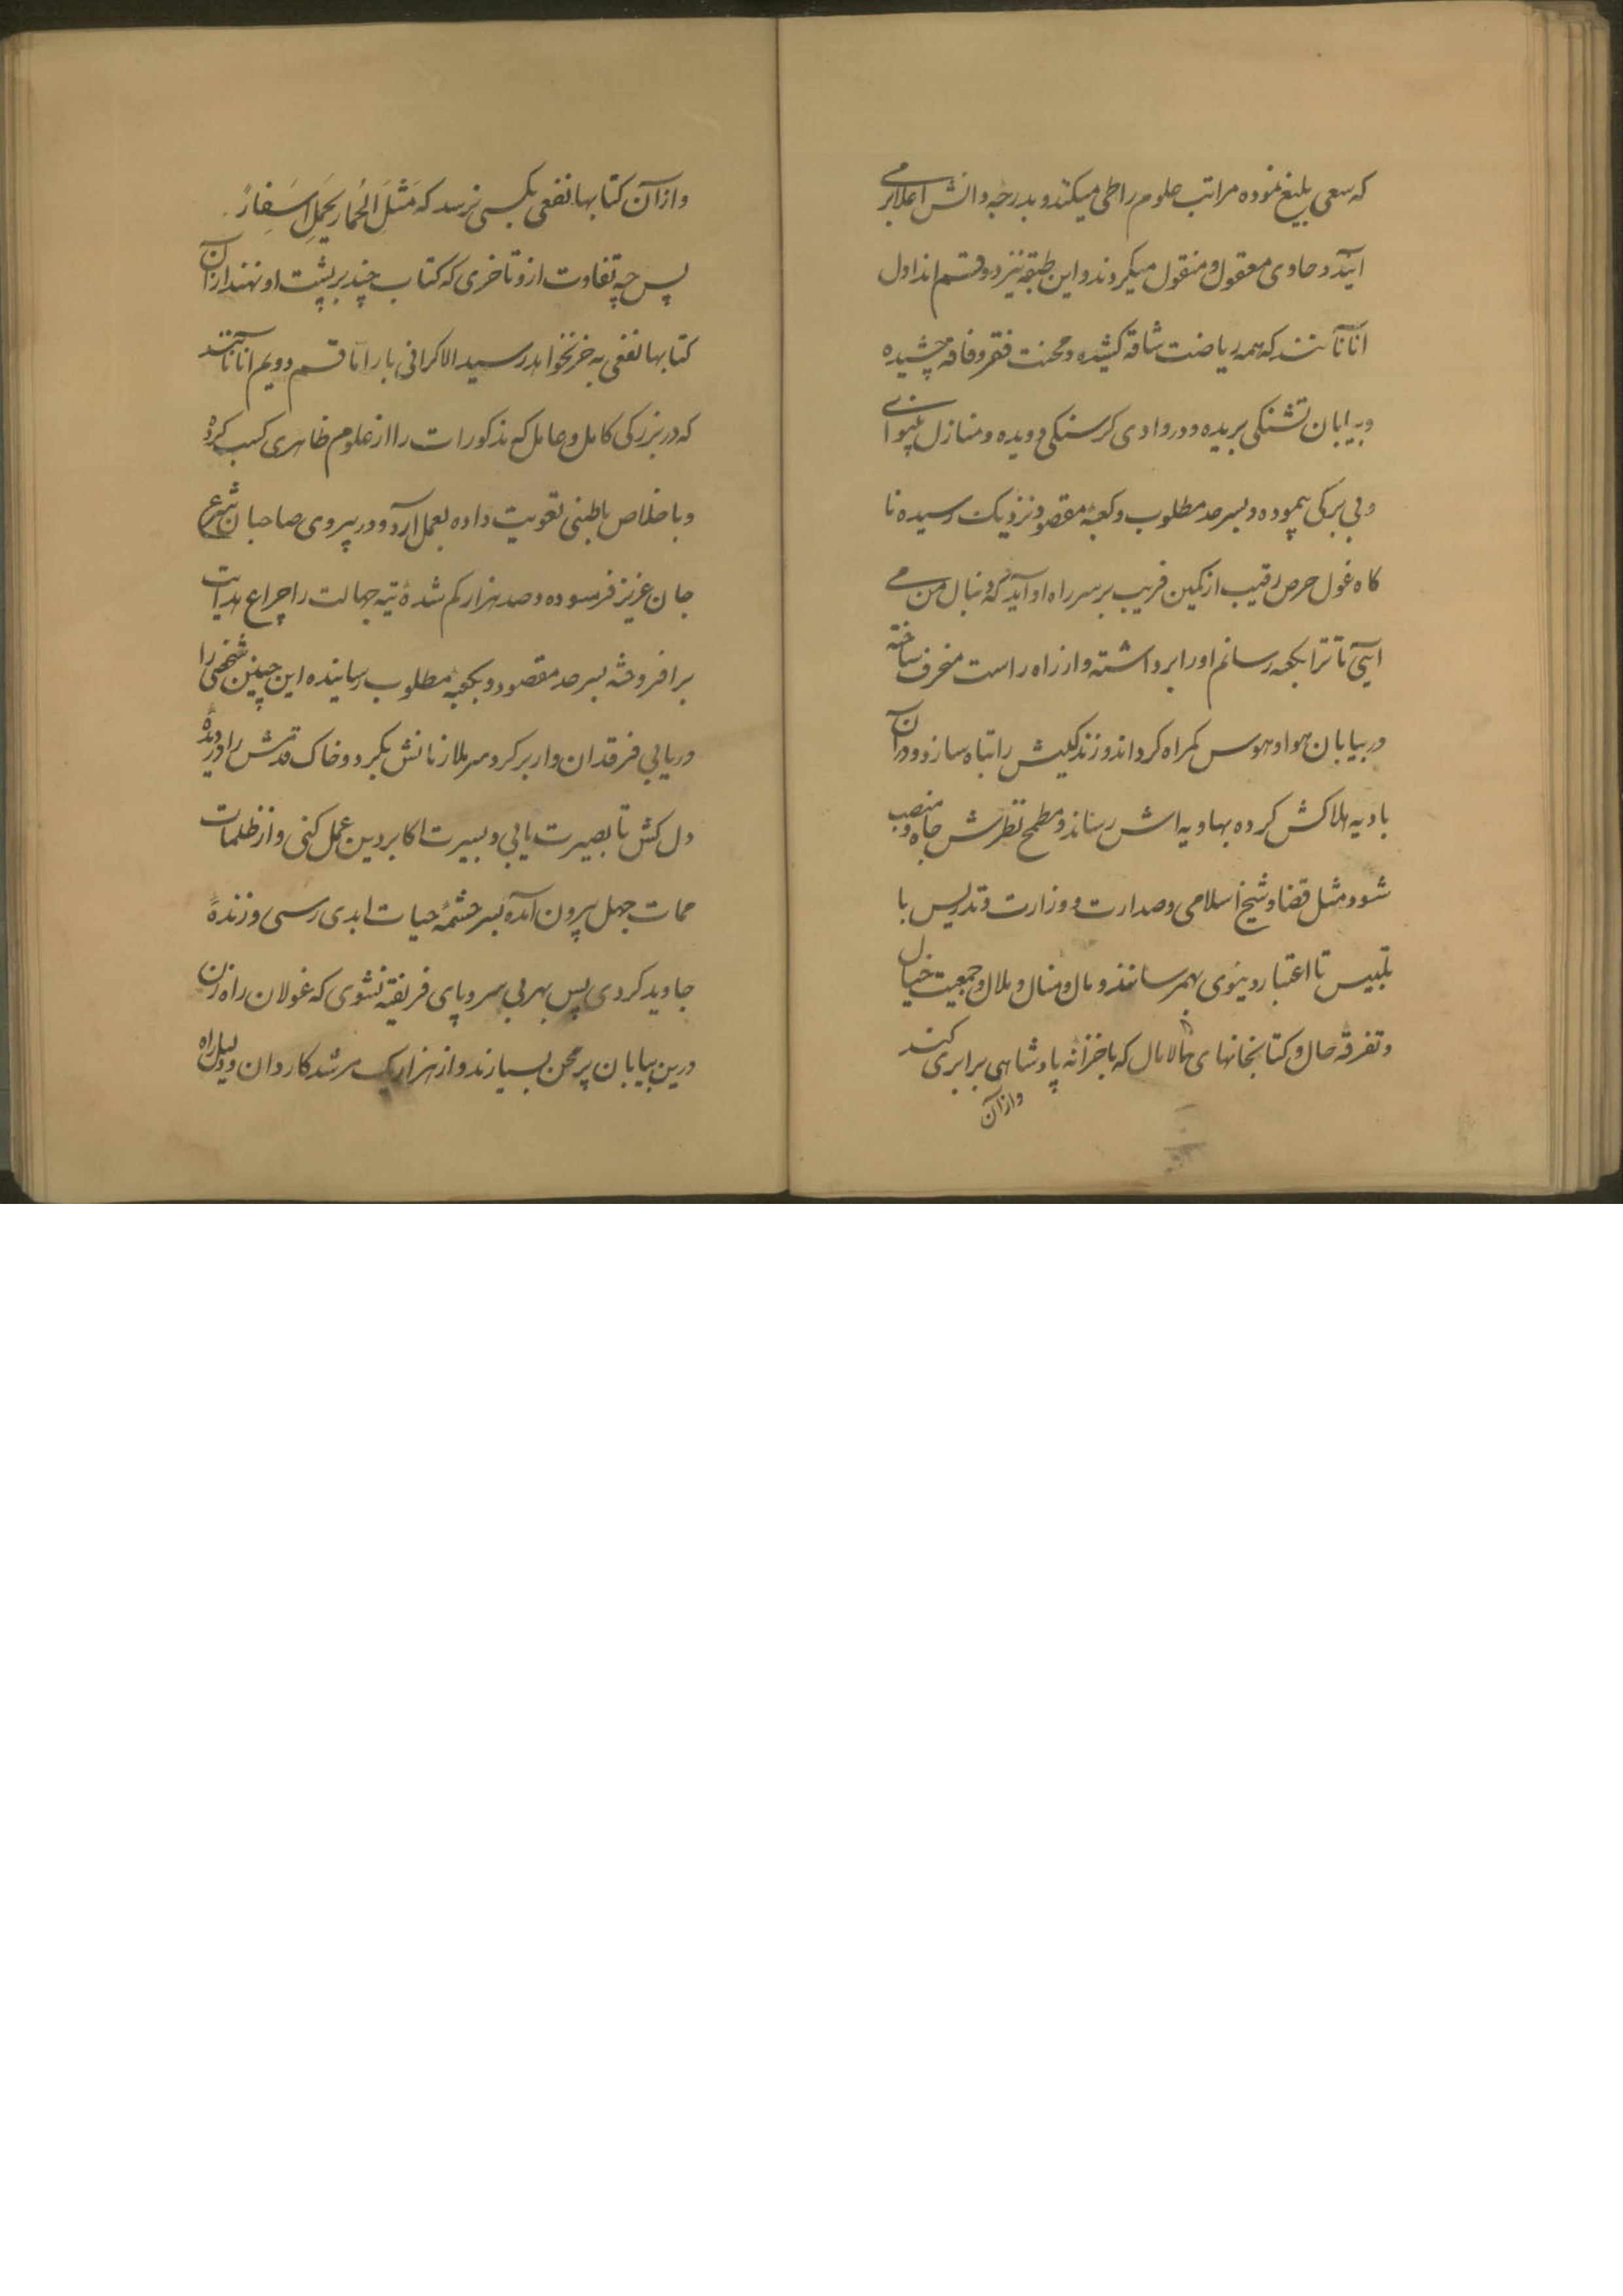 که سعی بلیغ نموده مراتب علوم را طی میکنند و بدرجه دانش اعلا بر می
آیند و حاوی معقول و منقول میکردند و این طبقه نیز دو قسم اند اول
آنانند که همه ریاضت شاقه کشیده و محنت فقر و فاقه چشیده
و بیابان تشنکی بریده و در وادی کرسنکی دویده و منازل بینوائی
و بی برکی پیموده و بسرحد مطلوب و کعبهٔ مقصود نزدیک رسیده نا
کاه غول حرص رقیب از کمین فریب بر سر راه او آید که دنبال من می
آیی تا ترا بکعبه رسانم او را برداشته و از راه راست منحرف ساخته
در بیابان هوا و هوس کمراه کرداند و زندکیش را تباه سازد و در آن
بادیه هلاکش کرده بهاویه اش رساند و مطمح نظرش جاه و منصب
شود مثل قضا و شیخ اسلامی و صدارت و وزارت و تدریس با
تلبیس تا اعتبار دینوی بهم رسانند و مال و منال و ملال و جمعیت خیال
و تفرقه حال و کتابخانهای مالامال که با خزانه پادشاهی برابری کند
و از آن
و از آن کتابها نفعی بکسی نرسد که مَثَلَ الحُمار یَحمِلِ اَسفِارً
پس چه تفاوت ازو تا خری که کتاب چند بر پشت او نهند از آن
کتابها نفعی به خر نخواهد رسید الا کرانی بار اما قسم دویم آنانند
که در بزرکی کامل و عامل که مذکورات را از علوم ظاهری کسب کرده
و با خلاص باطنی تقویت داده بعمل آرد و در پیروی صاحبان شرع
جان عزیز فرسوده و صد هزار کم شدهٔ تیه جهالت را چراغ هدایت
برافروخته بسرحد مقصود و بکعبهٔ مطلوب رسانیده این چنین شخصی را
دریابی فرقدان وار بر کرد سر ملازمانش بکرد و خاک قدمش را در دیدهٔ
دل کش تا بصیرت یابی و بسیرت اکابر دین عمل کنی و از ظلمات
ممات جهل بیرون آمده بسر چشمهٔ حیات ابدی رسی و زندهٔ
جاوید کردی پس بهر بی سر و پای فریفته نشوی که غولان راه زن
درین بیابان پر محن بسیارند و از هزار یک مرشد کاردان و دلیل راه